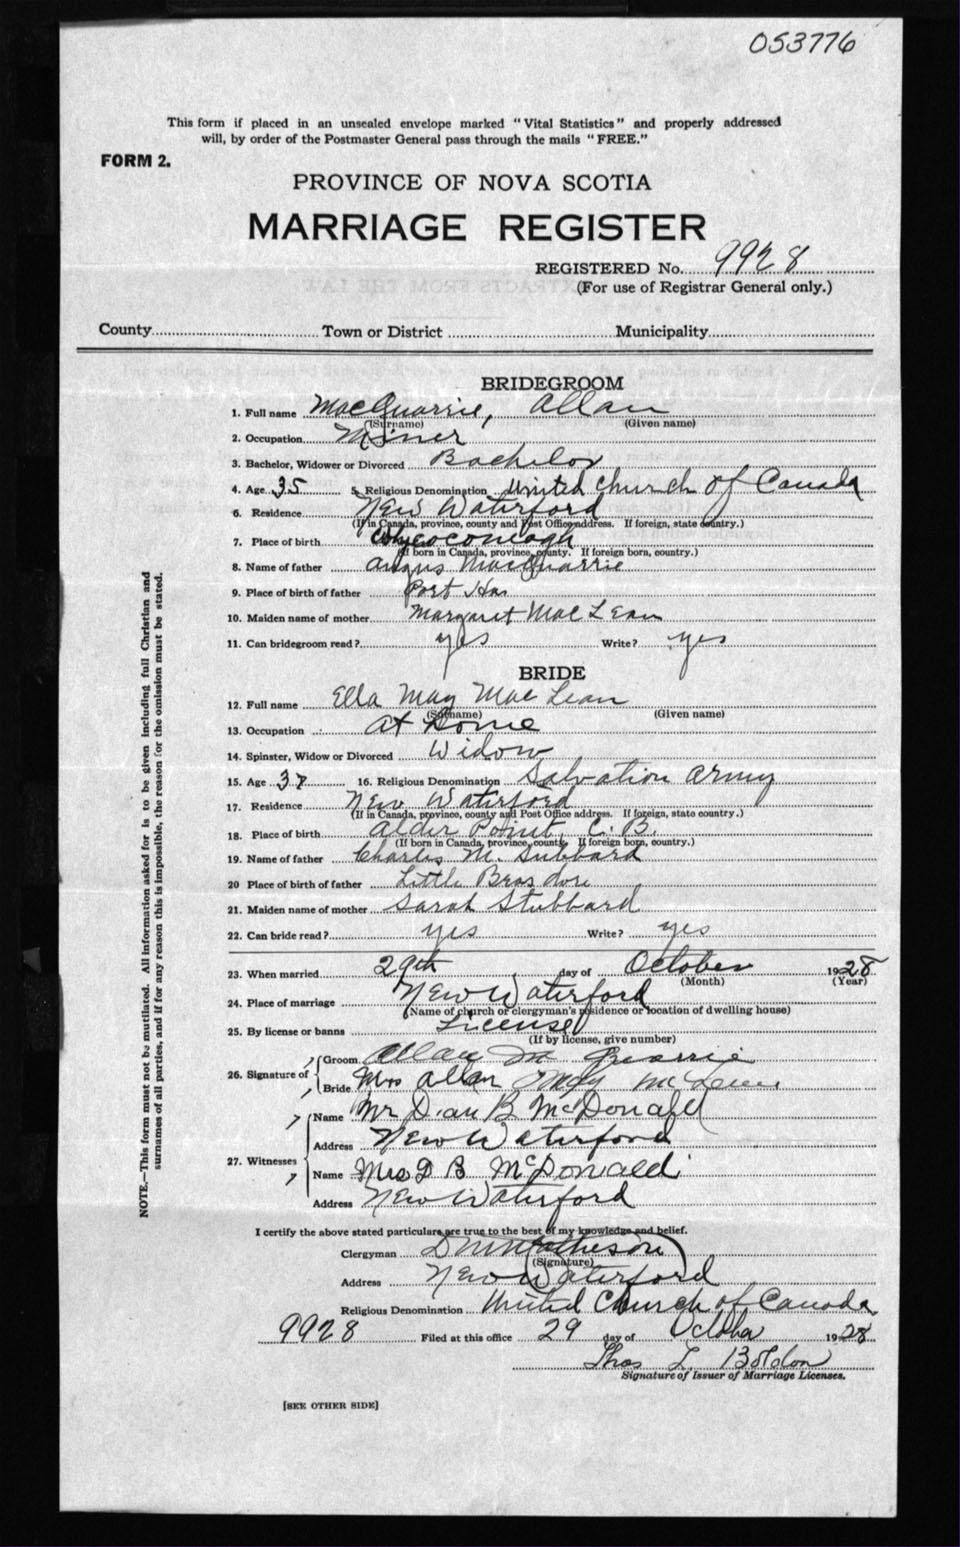 053776
This form if placed in an unsealed envelope marked "Vital Statistics" and properly addressed
will, by order of the Postmaster General pass through the mails "FREE."
FORM 2.
PROVINCE OF NOVA SCOTIA
MARRIAGE REGISTER
REGISTERED No. 9928
(For use of Registrar General only.)
County Town or District Municipality
BRIDEGROOM
1. Full name MacQuarrie, Allan
(Surname) (Given name)
2. Occupation Miner
3. Bachelor, Widower or Divorced Bachelor
4. Age 35 5. Religious Denomination United Church of Canada
6. Residence New Waterford
(If in Canada, province, county and Post Office address. If foreign, state country.)
7. Place of birth Whycocomagh
(If born in Canada, province, county. If foreign born, country.)
8. Name of father Angus MacQuarrie
9. Place of birth of father Port Has
10. Maiden name of mother Margaret MacLean
11. Can bridegroom read? yes Write? yes
BRIDE
12. Full name Ella May MacLean
(Surname) (Given name)
13. Occupation At Home
14. Spinster, Widow or Divorced Widow
15. Age 16. Religious Denomination Salvation Army
17. Residence New Waterford
(If in Canada, province, county and Post Office address. If foreign, state country.)
18. Place of birth Alder Point, C. B.
(If born in Canada, province, county. If foreign born, country.)
19. Name of father Charles M. Stubbard
20 Place of birth of father Little Bras dore
21. Maiden name of mother Sarah Stubbard
22. Can bride read? yes Write? yes
23. When married 29th day of October 1928
(Month) (Year)
24. Place of marriage New Waterford
(Name of church or clergyman's residence or location of dwelling house)
25. By license or banns License
(If by license, give number)
26. Signature of Groom Allan Mc Quarrie
Bride Mrs Allan May McLean
27. Witnesses Name Mr Dan B McDonald
Address New Waterford
Name Mrs D B McDonald
Address New Waterford
I certify the above stated particulars are true to the best of my knowledge and belief.
Clergyman D M Matheson
(Signature)
Address New Waterford
Religious Denomination United Church of Canada
9928 Filed at this office 29 day of October 1928
Thos L Boldon
Signature of Issuer of Marriage Licenses.
[SEE OTHER SIDE]
NOTE.—This form must not be mutilated. All information asked for is to be given including full Christian and
surnames of all parties, and if for any reason this is impossible, the reason for the omission must be stated.